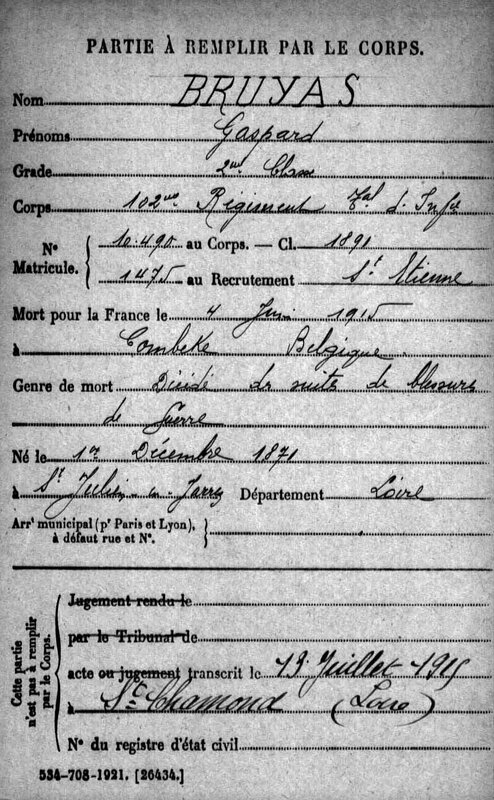 PARTIE À REMPLIR PAR LE CORPS.
Nom BRUYAS
Prénoms Gaspard
Grade 2me Classe
Corps 102me Régiment Tal d'Infie
N° Matricule. 10.490 au Corps. — Cl. 1891
1475 au Recrutement St Etienne
Mort pour la France le 4 Juin 1915
à Combeke Belgique
Genre de mort Décédé de suites de blessures
de Guerre
Né le 1er Décembre 1871
à St Julien-en-Jarrez Département Loire
Arrt municipal (pr Paris et Lyon),
à défaut rue et N°.
Cette partie n'est pas à remplir par le Corps.
Jugement rendu le
par le Tribunal de
acte ou jugement transcrit le 13 Juillet 1915
à St Chamond (Loire)
N° du registre d'état civil
534-708-1921. [26434.]